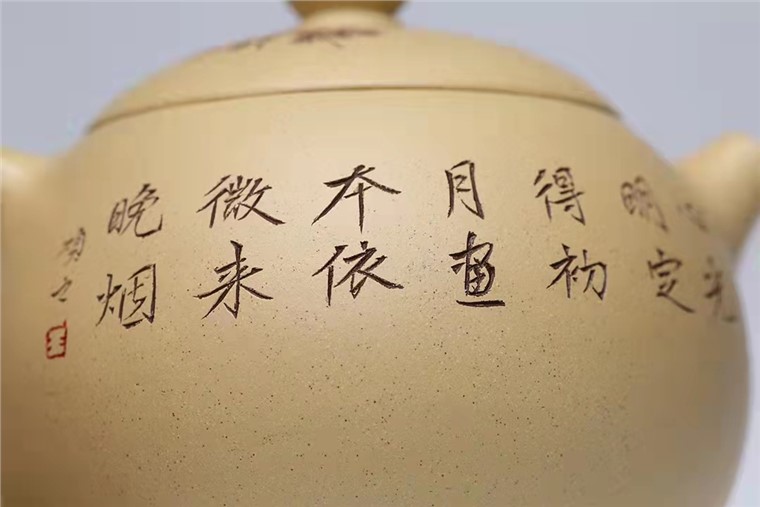 心光
明定
得初
月画
本依
微来
晚烟